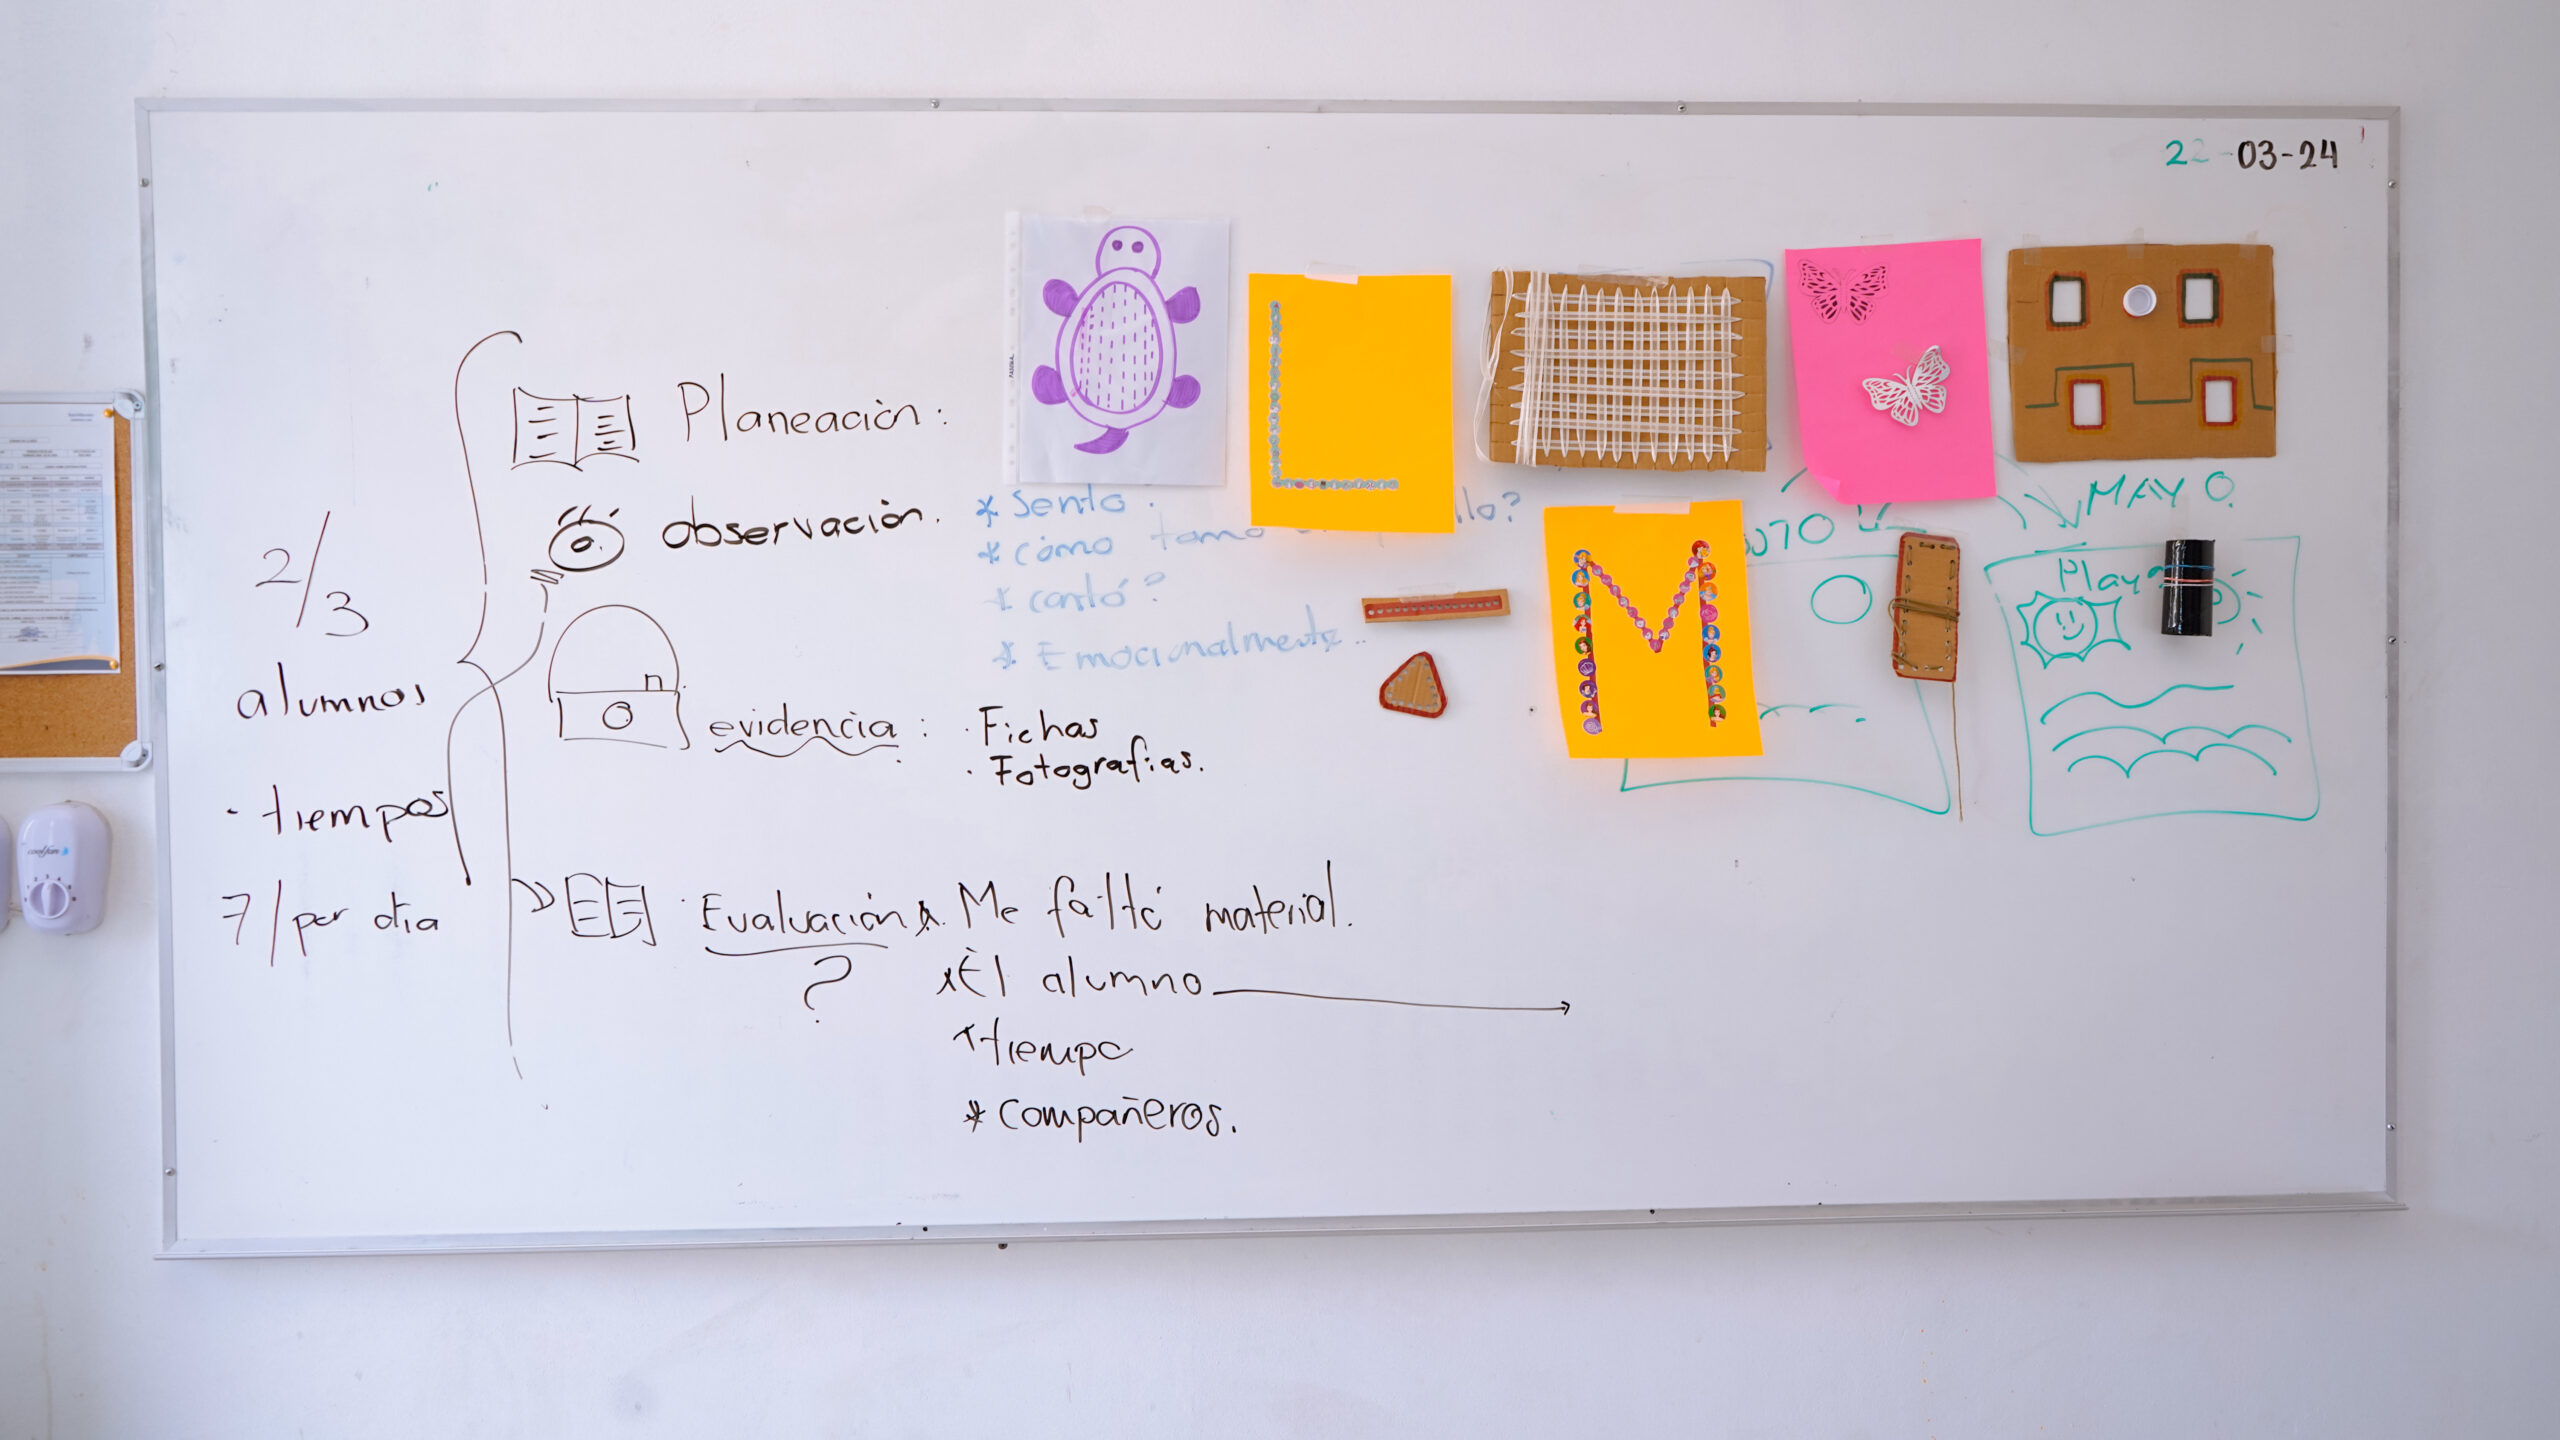 22-03-24
Planeación:
observación.
* Sento.
* cómo tomo
llo?
* cantó?
* Emocionalmente..
MAYO.
Playa
2/3
alumnos
· tiempos
7/por dia
evidencia:
· Fichas
· Fotografias.
Evaluación
?
* Me faltó material.
* El alumno
* tiempo
* compañeros.
L
M
coolfan